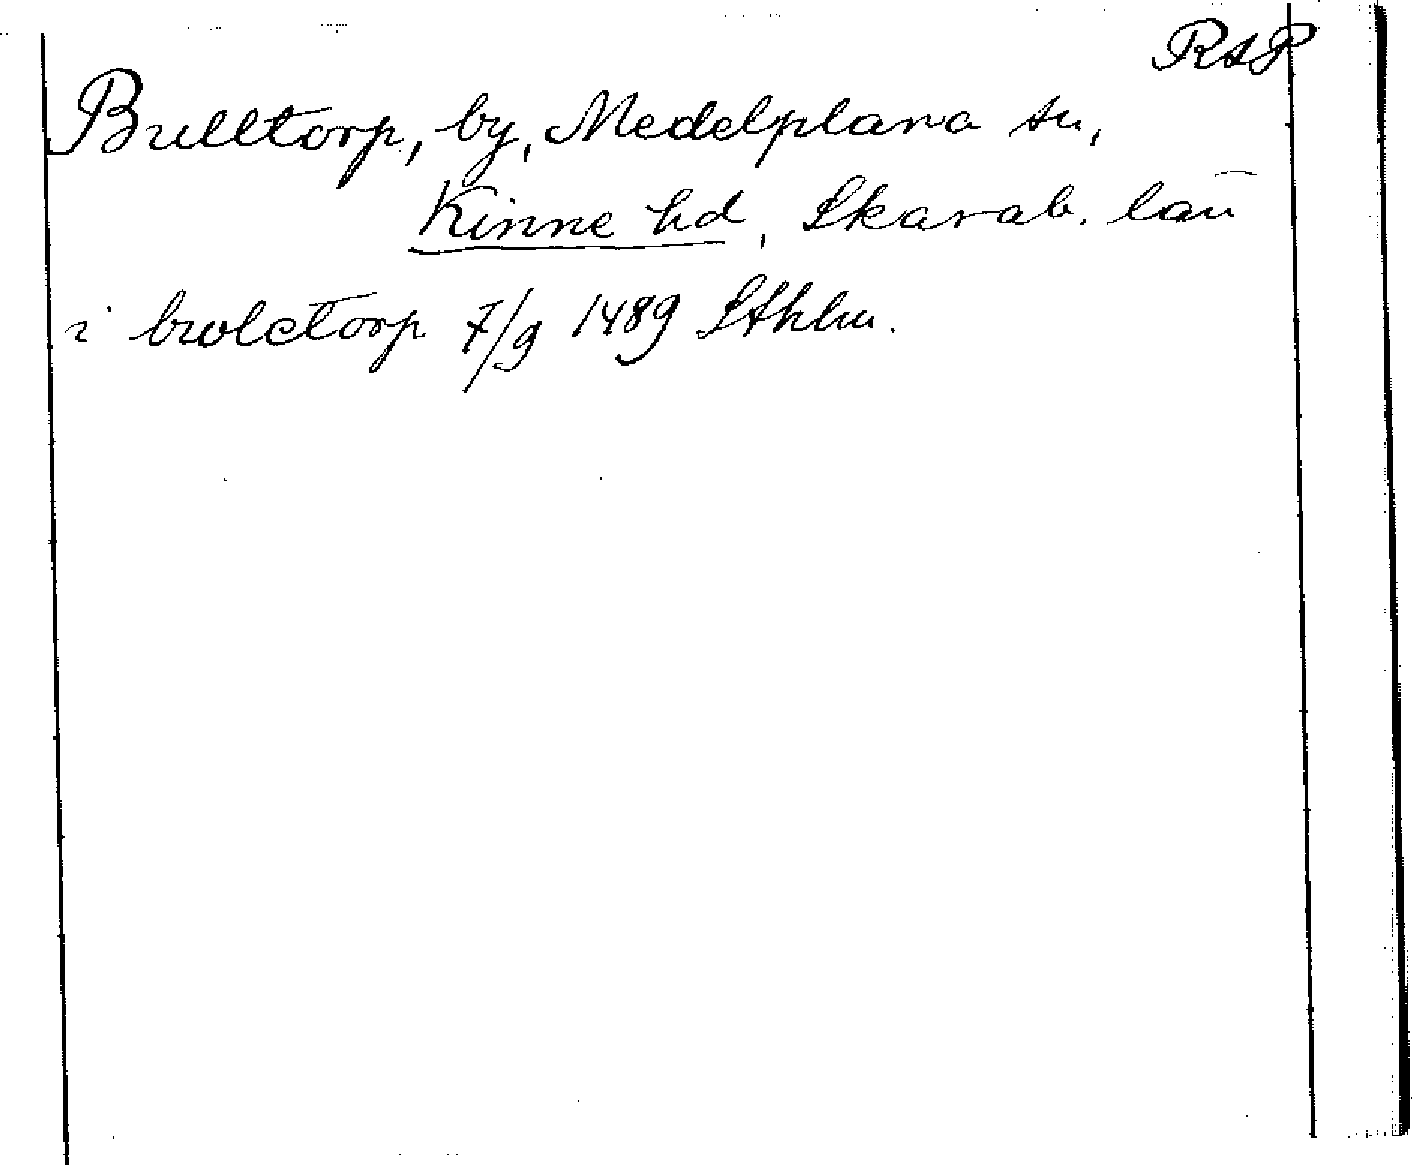 RAP
Bulltorp, by, Medelplana sn,
Kinne hd, Skarab. län
i bwlctorp 7/9 1489 Sthlm.